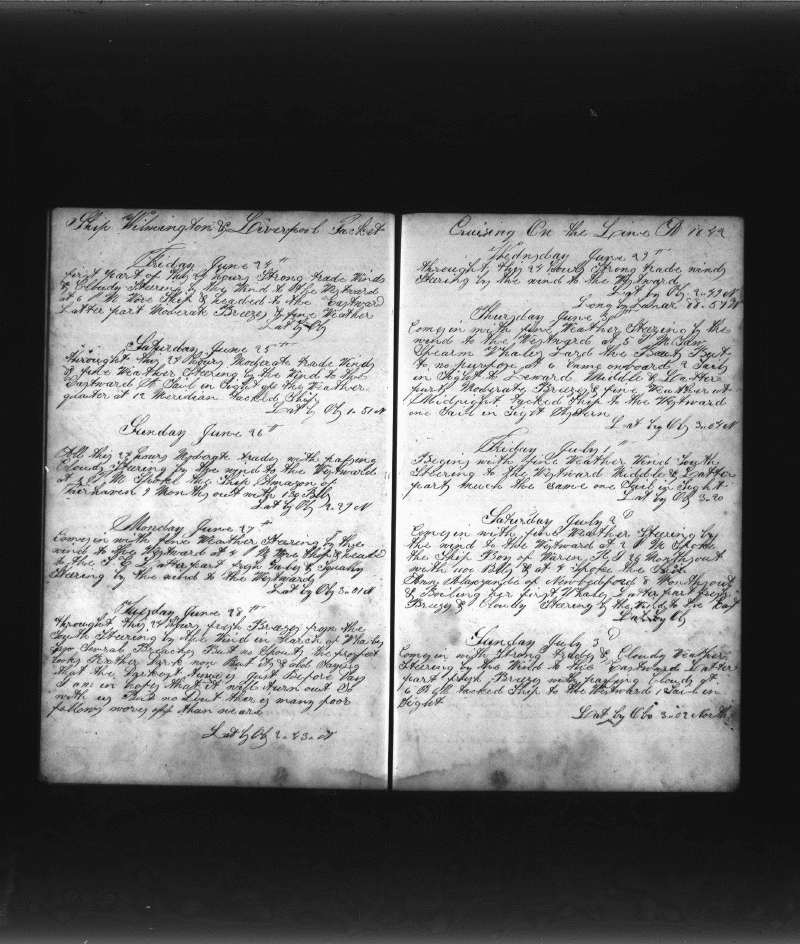 Ship Wilmington & Liverpool Packet
Friday June 24th
first part of this 24 hours Strong trade Winds
& Cloudy Steering by the Wind to the Westward
at 6 P M Wore Ship & headed to the Eastward
Latter part Moderate Breezes & fine Weather
Lat by Ob
Saturday June 25th
throught this 24 hours Moderate trade Winds
& fine Weather Steering by the Wind to the
Eastward A Sail in Sight of the Weather
quarter at 12 Meridian tacked Ship
Lat by Ob 1..51 N
Sunday June 26th
All this 24 hours Moderate trades with passing
Clouds Steering by the wind to the Westward
at P M Spoke the Ship Amazon of
Fairhaven 9 Months out with 130 Bbls
Lat by Ob 2..29 N
Monday June 27th
Comes in with fine Weather Steering by the
wind to the Westward at P M Wore Ship & headed
to the S E Latter part fresh Gales & Squally
Steering by the wind to the Westward
Lat by Ob 3..01 N
Tuesday June 28th
throught this 24 hours fresh Breezes from the
South Steering by the Wind in Search of Whales
Breaches But no Spouts the prospect
looks Rather dark now But its a old Saying
that the darkest time is Just before day
I am in hopes that it will turn out So
with us But no doubt thar is many poor
fellows worse off than we are
Lat by Ob 2..43 N
Cruising On the Line AD 1842
Wednsday June 29th
throught this 24 hours Strong trade winds
Steering by the wind to the Westward
Lat by Ob 2..49 N
Long by Lunar 88..57 W
Thursday June 30th
Comes in with fine Weather Steering by the
wind to the Westward at 5 P M Saw
Spearm Whales Lard the Boats But
to no purpose at 6 Came onboard 2 Sails
in Sight to Leward Middle & Latter
part Moderate Breezes & fine Weather at
Midnight tacked Ship to the Westward
one Sail in Sight Astern
Lat by Ob 3..04 N
Friday July 1st
Begins with fine Weather Wind South
Steering to the Westward Middle & Latter
part much the Same one Sail in Sight
Lat by Ob 3..20
Saturday July 2d
Comes in with fine Weather Steering by
the wind to the Westward at 2 P M Spoke
the Ship of Warren R I 26 Months out
with 1100 Bbls & at Spoke the Ship
Ann Alaxander of Newbedford 8 Months out
& Boiling her first Whales Latter part fresh
Breezes & Cloudy Steering by the Wind to the East
Lat by Ob
Sunday July 3d
Comes in with Strong trades & Cloudy Weather
Steering by the Wind to the Eastward Latter
part fresh Breezes with passing Clouds at
6 P M tacked Ship to the Westward 1 Sail in
Sight
Lat by Obs 3..02 North